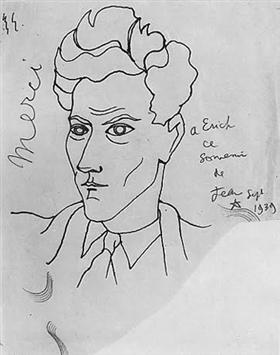 Merci
a Erich
ce
Souvenir
de
Jean
Sept
1939